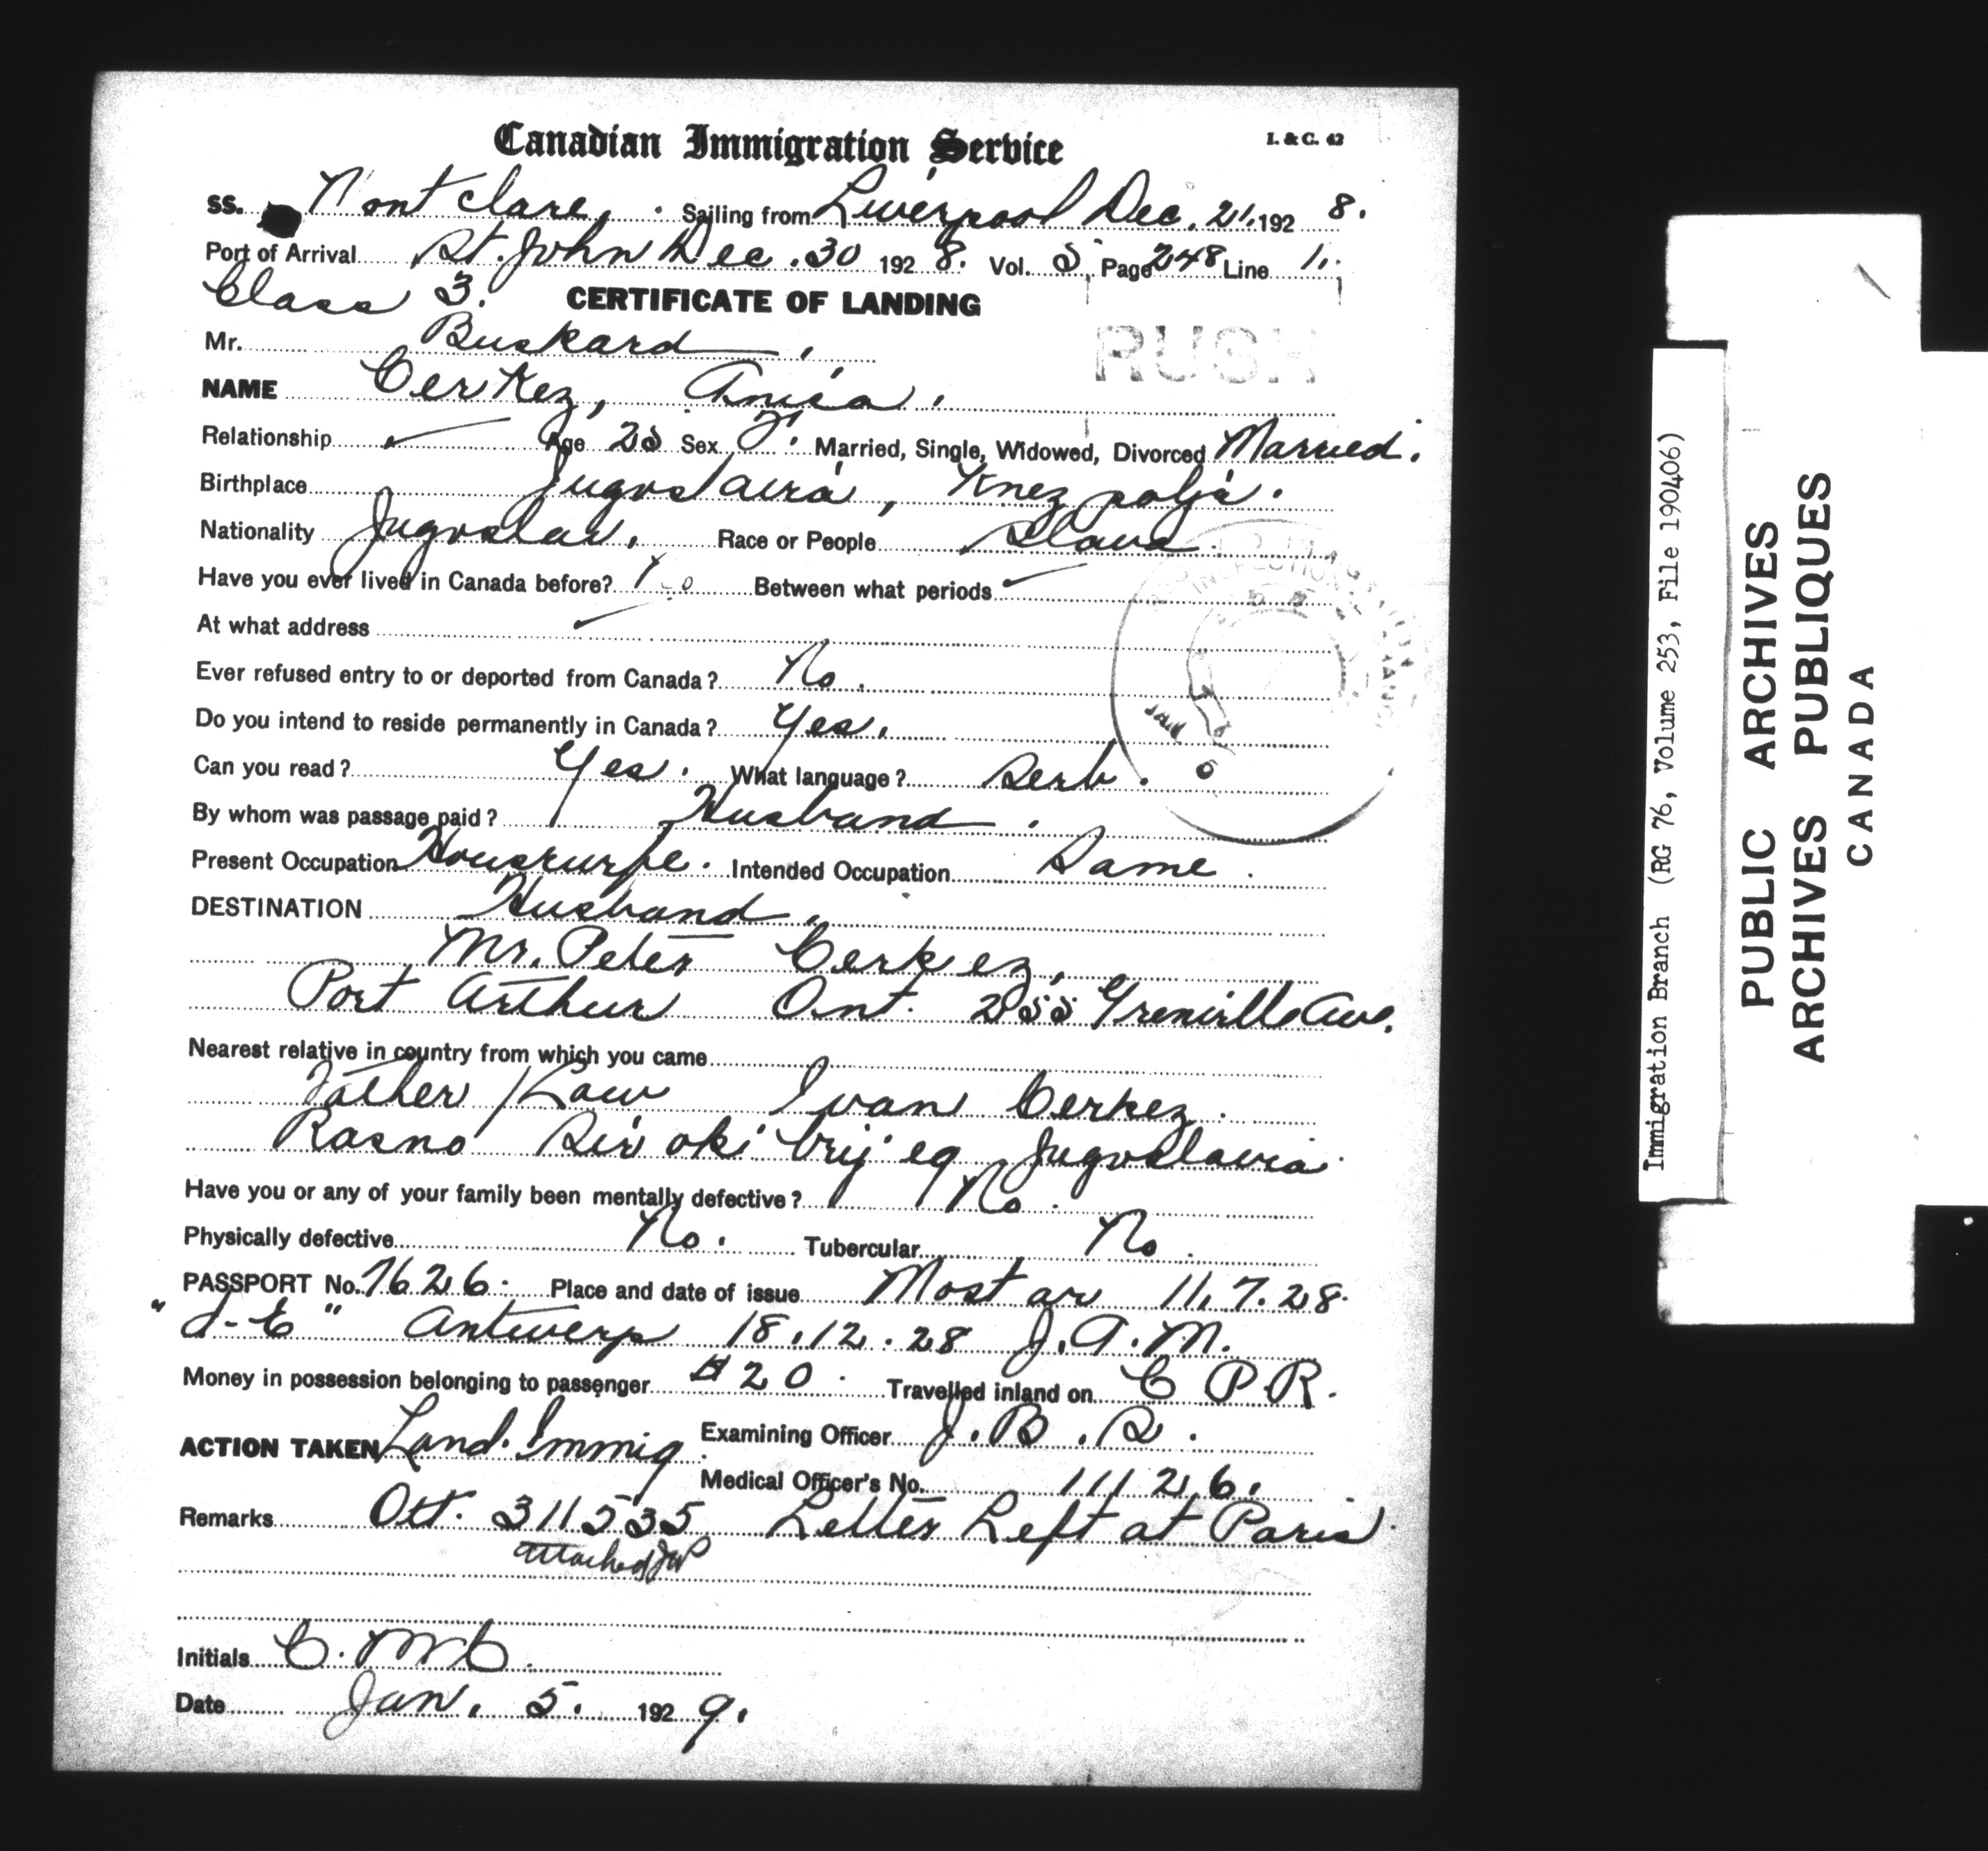 Canadian Immigration Service
I. & C. 42
SS. Montclare, Sailing from Liverpool Dec. 21. 1928.
Port of Arrival St. John Dec. 30 1928. Vol. 5, Page 248 Line 1.
Class 3.
CERTIFICATE OF LANDING
Mr. Buskard,
RUSH
NAME Cerkez, Anica.
Relationship Age 25 Sex F. Married, Single, Widowed, Divorced Married.
Birthplace Jugoslavia, Knezpolja.
Nationality Jugoslav. Race or People Slava.
Have you ever lived in Canada before? No Between what periods
At what address
Ever refused entry to or deported from Canada? No.
Do you intend to reside permanently in Canada? Yes.
Can you read? Yes. What language? Serb.
By whom was passage paid? Husband.
Present Occupation Housewife. Intended Occupation Same.
DESTINATION Husband.
Mr. Peter Cerkez,
Port Arthur Ont. 255 Grenville Ave.
Nearest relative in country from which you came
Father / Law Ivan Cerkez.
Rasno Siroki brijeg Jugoslavia
Have you or any of your family been mentally defective? No.
Physically defective No. Tubercular No.
PASSPORT No. 7626. Place and date of issue Mostar 11.7.28.
"d-E" Antwerp 18.12.28 J.A.M.
Money in possession belonging to passenger $20. Travelled inland on C.P.R.
ACTION TAKEN Land. Immig. Examining Officer J.B.R.
Medical Officer's No. 11126.
Remarks Ott. 311535 Letter Left at Paris.
attached
Initials C.McC.
Date Jan. 5. 1929.
JAN
Immigration Branch (RG 76, Volume 253, File 190406)
PUBLIC ARCHIVES
ARCHIVES PUBLIQUES
CANADA